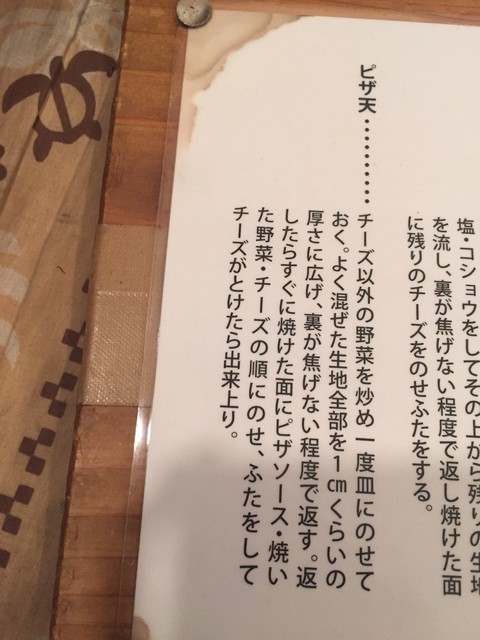 塩・コショウをしてその上から残りの生地
を流し、裏が焦げない程度で返し焼けた面
に残りのチーズをのせふたをする。
ピザ天・・・・・・・・・・・チーズ以外の野菜を炒め一度皿にのせて
おく。よく混ぜた生地全部を1㎝くらいの
厚さに広げ、裏が焦げない程度で返す。返
したらすぐに焼けた面にピザソース・焼い
た野菜・チーズの順にのせ、ふたをして
チーズがとけたら出来上り。